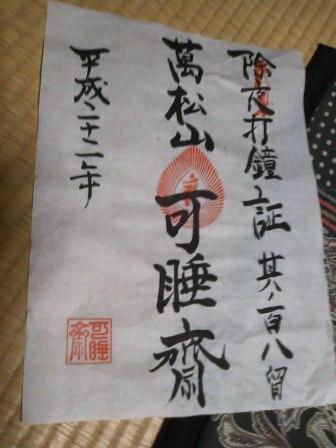 除夜打鐘之証 其ノ百八留
萬松山 可睡齋
平成二十二年
可睡齋